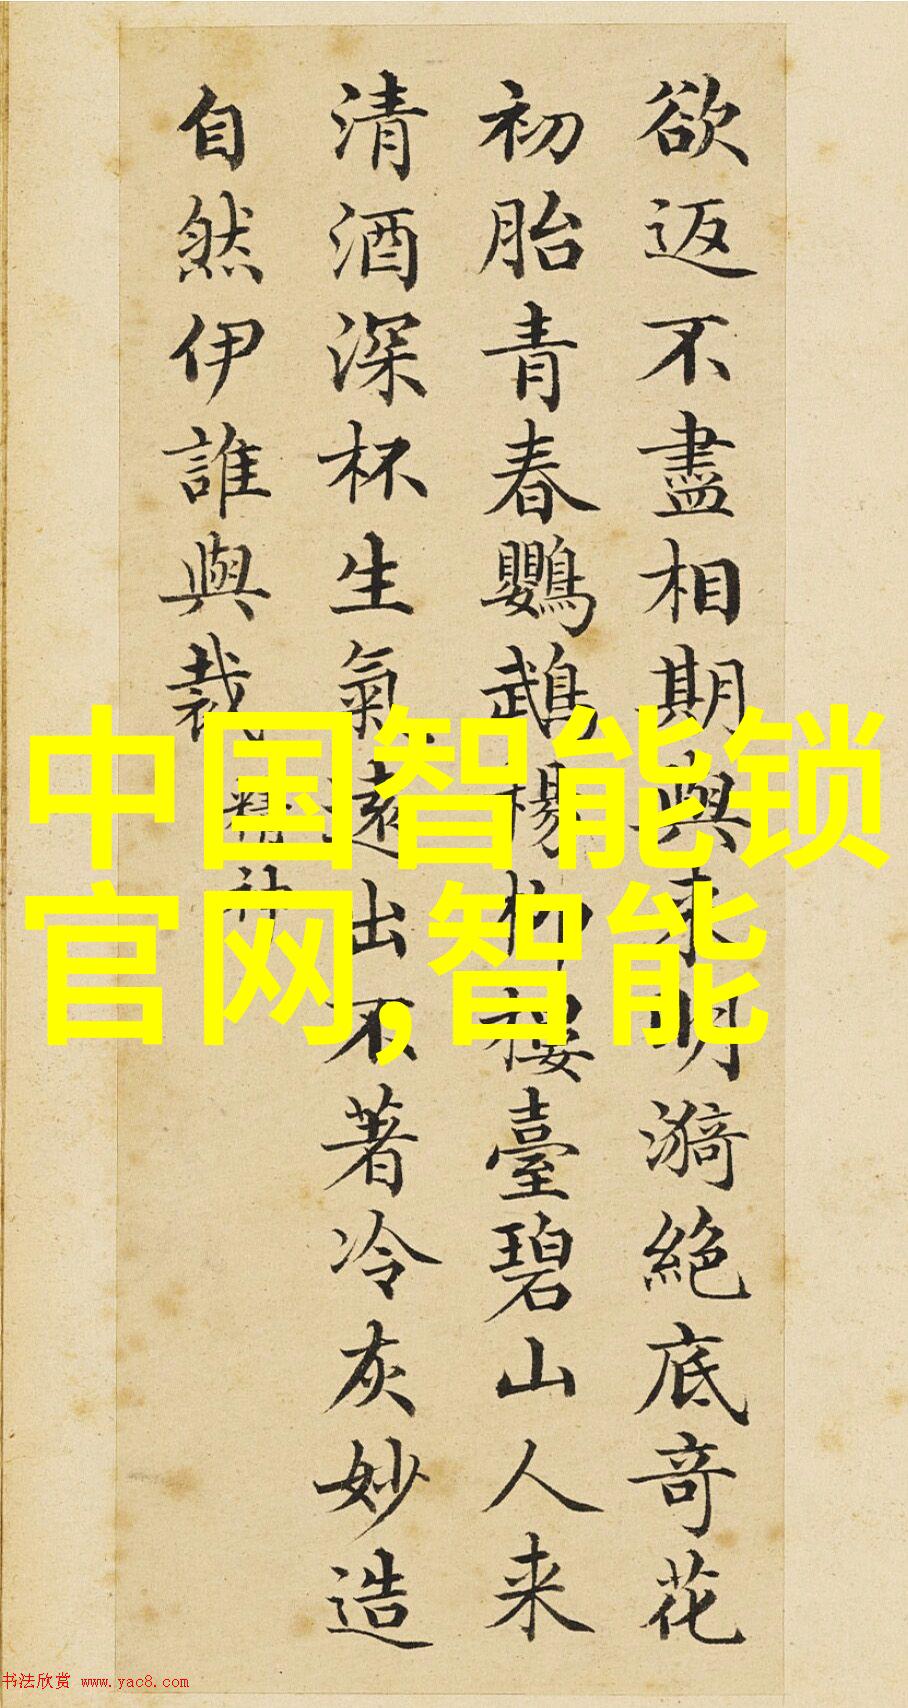 欲返不盡相期與来明漪絶底奇花
初胎青春鸚鵡楊柳樓臺碧山人来
清酒深杯生氣遠出不著冷灰妙造
自然伊誰與裁
精神
中国智能锁
官网,智能
书法欣赏 www.yac8.com